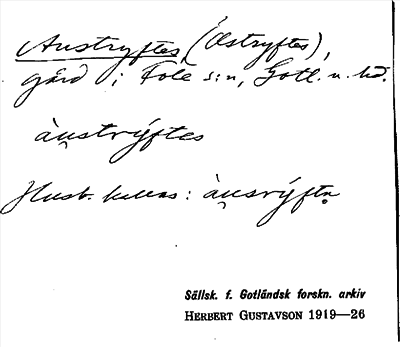 Austryftes, (Östryftes),
gård i Fole s:n, Gotl. n. hd.
àu̯strýftes
Husb. kallas: àu̯srýftn̥
Sällsk. f. Gotländsk forskn. arkiv
HERBERT GUSTAVSON 1919—26